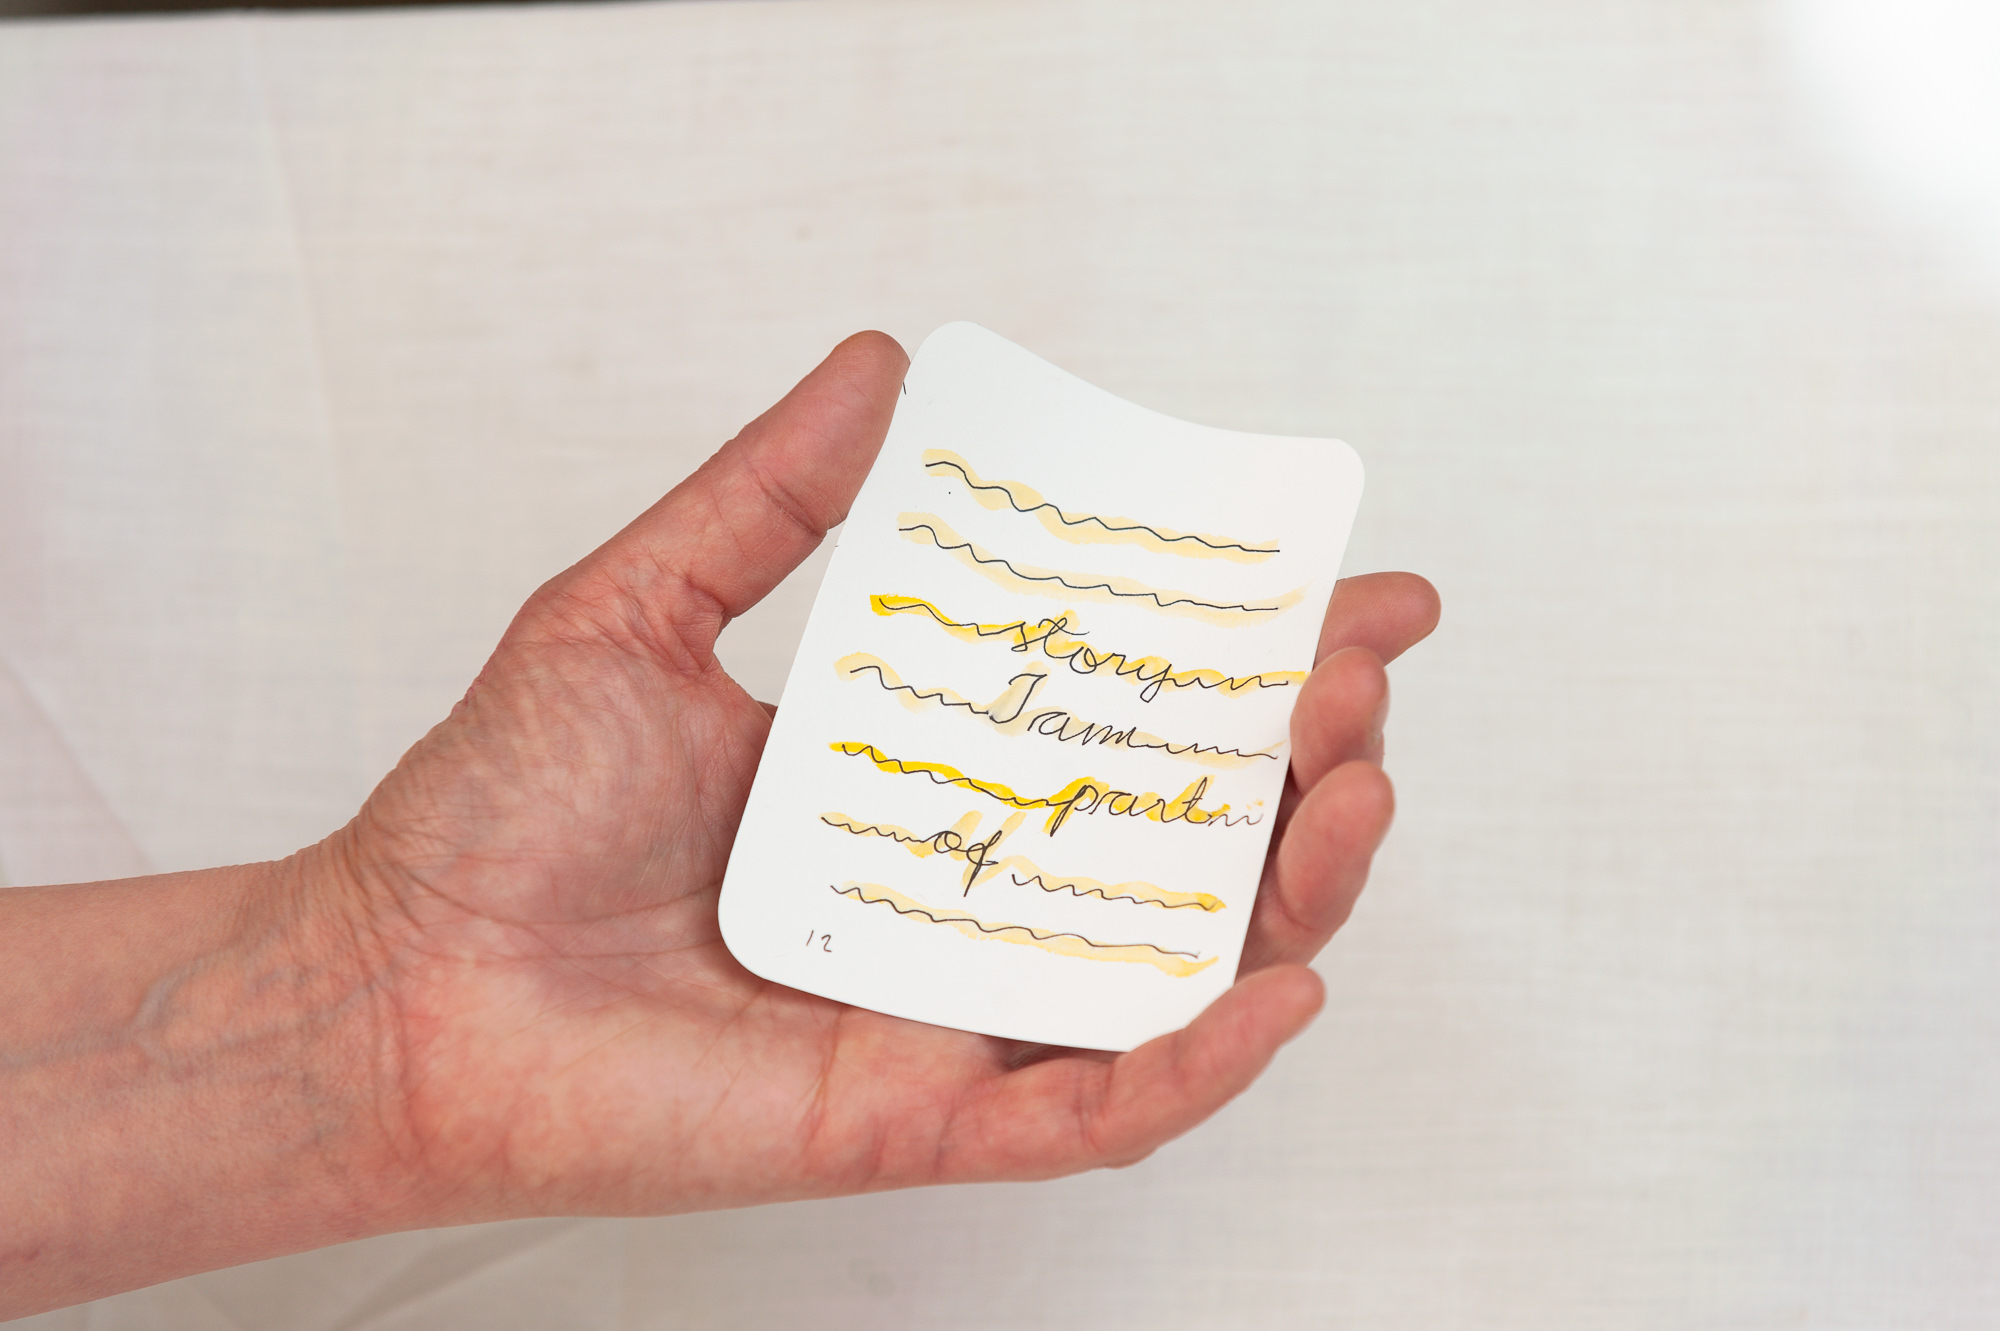 story
I am
part
of
12